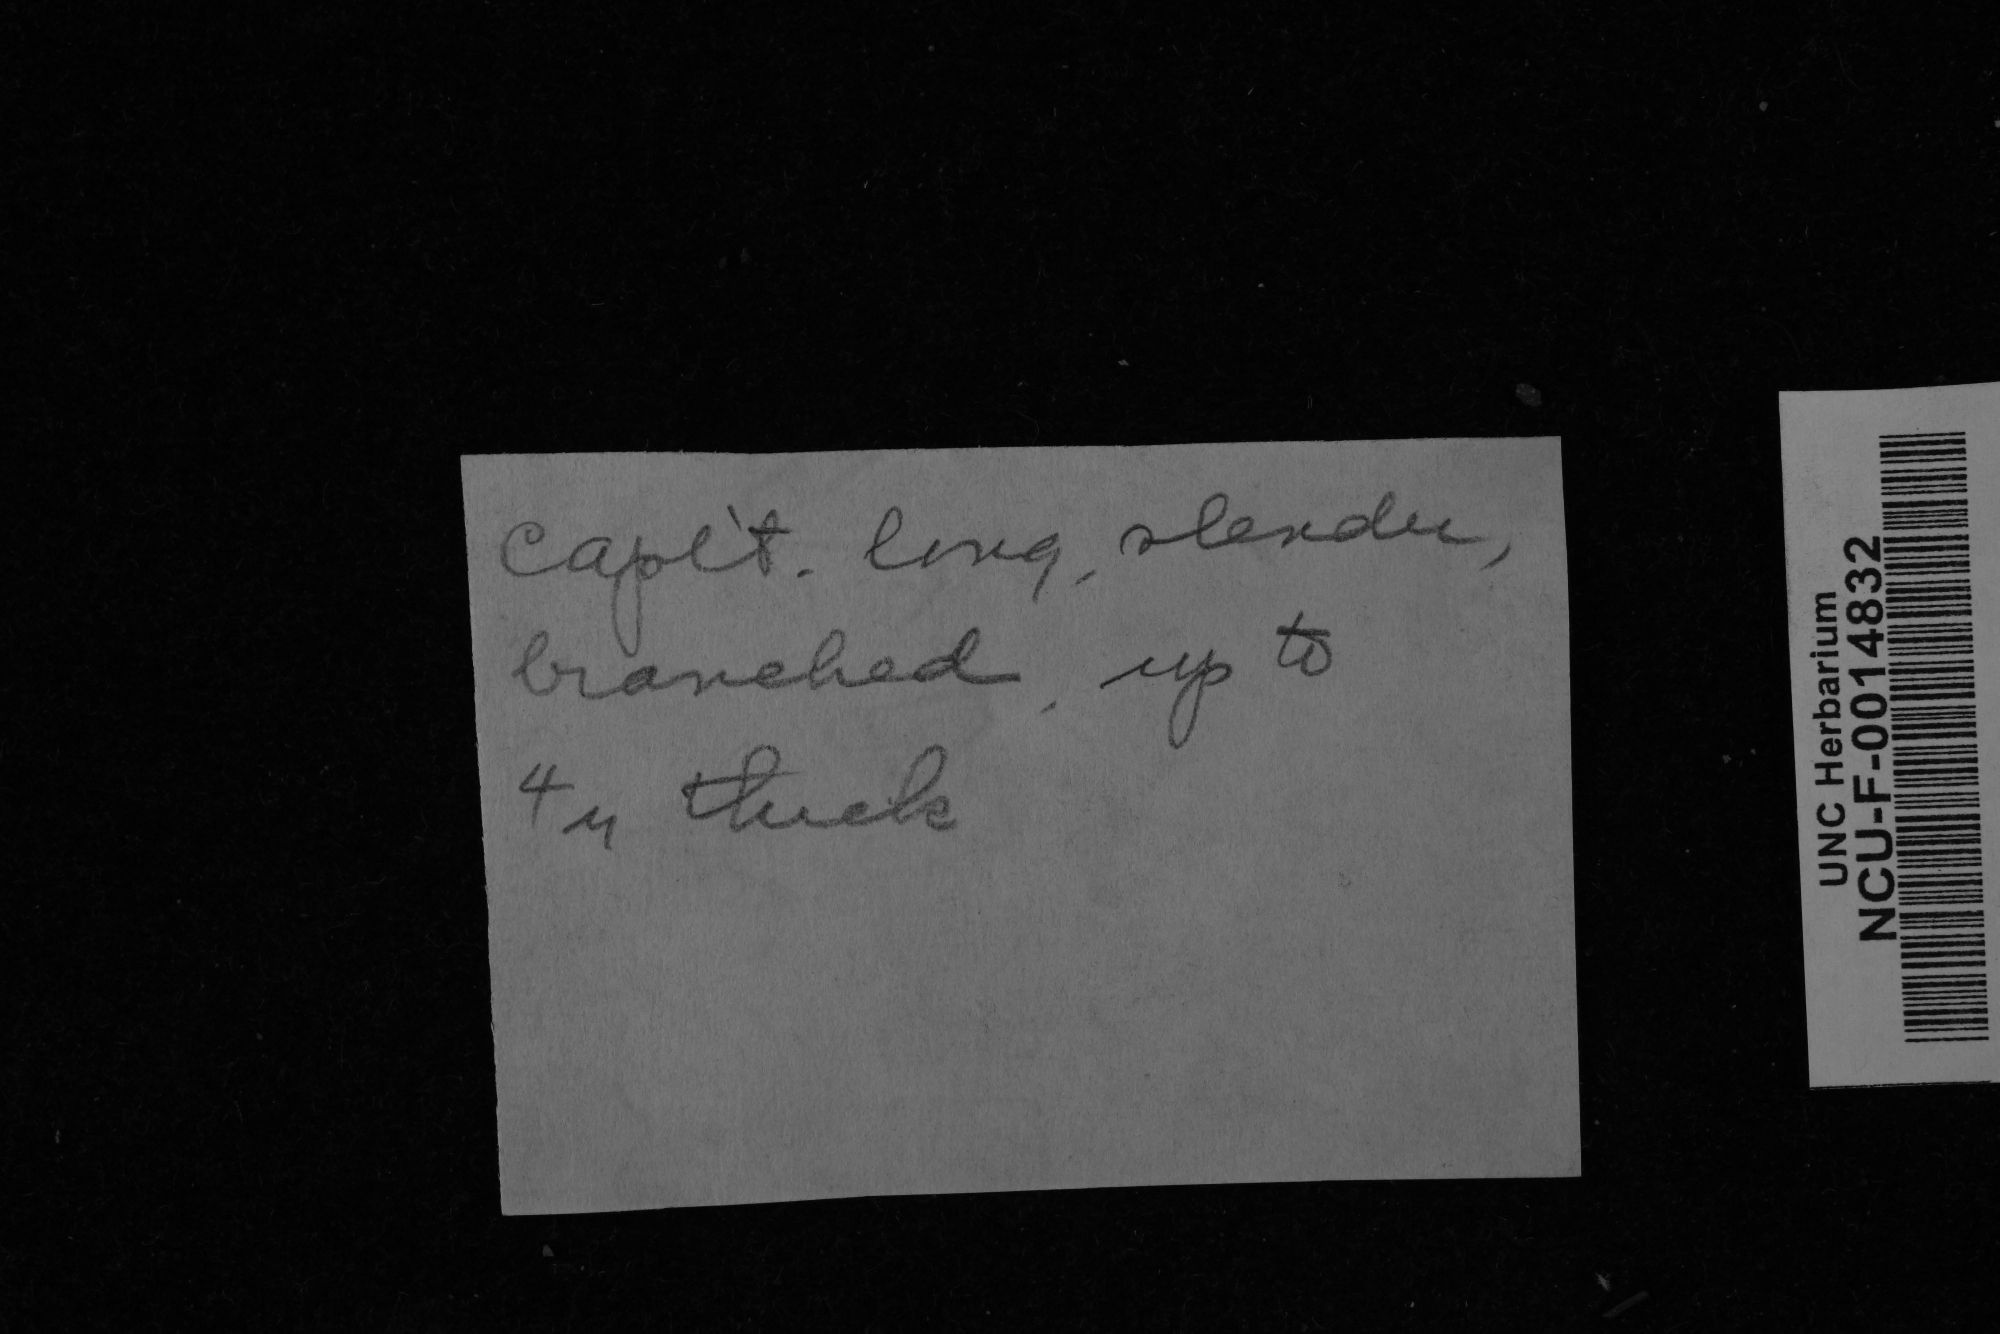 Capl't. long, slender,
branched, up to
4µ thick
UNC Herbarium
NCU-F-0014832